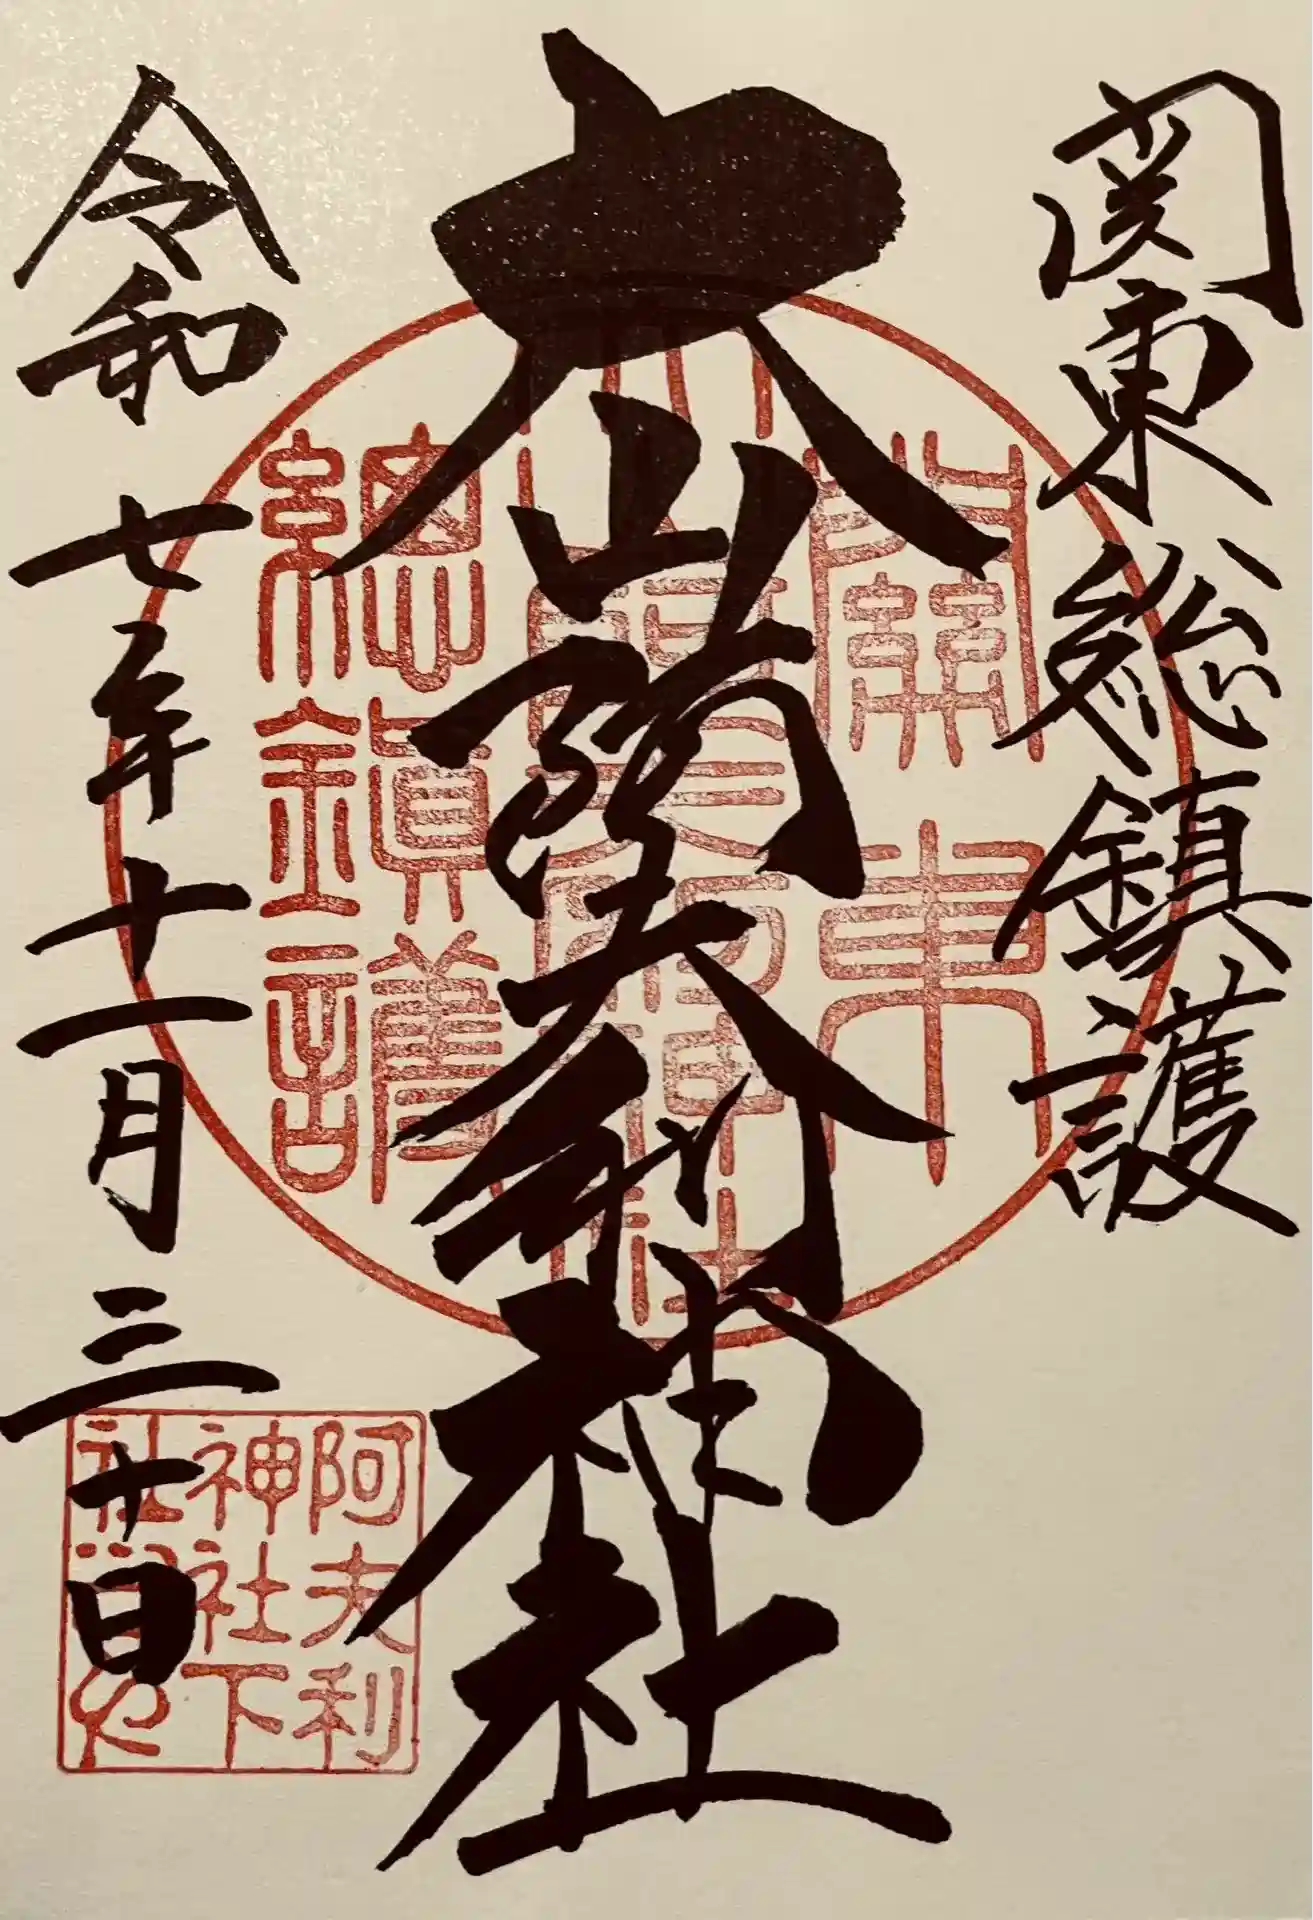 関東総鎮護
大山阿夫利神社
令和七年十一月三十日
關東
大山阿夫利神社
總鎮護
阿夫利
神社下
社